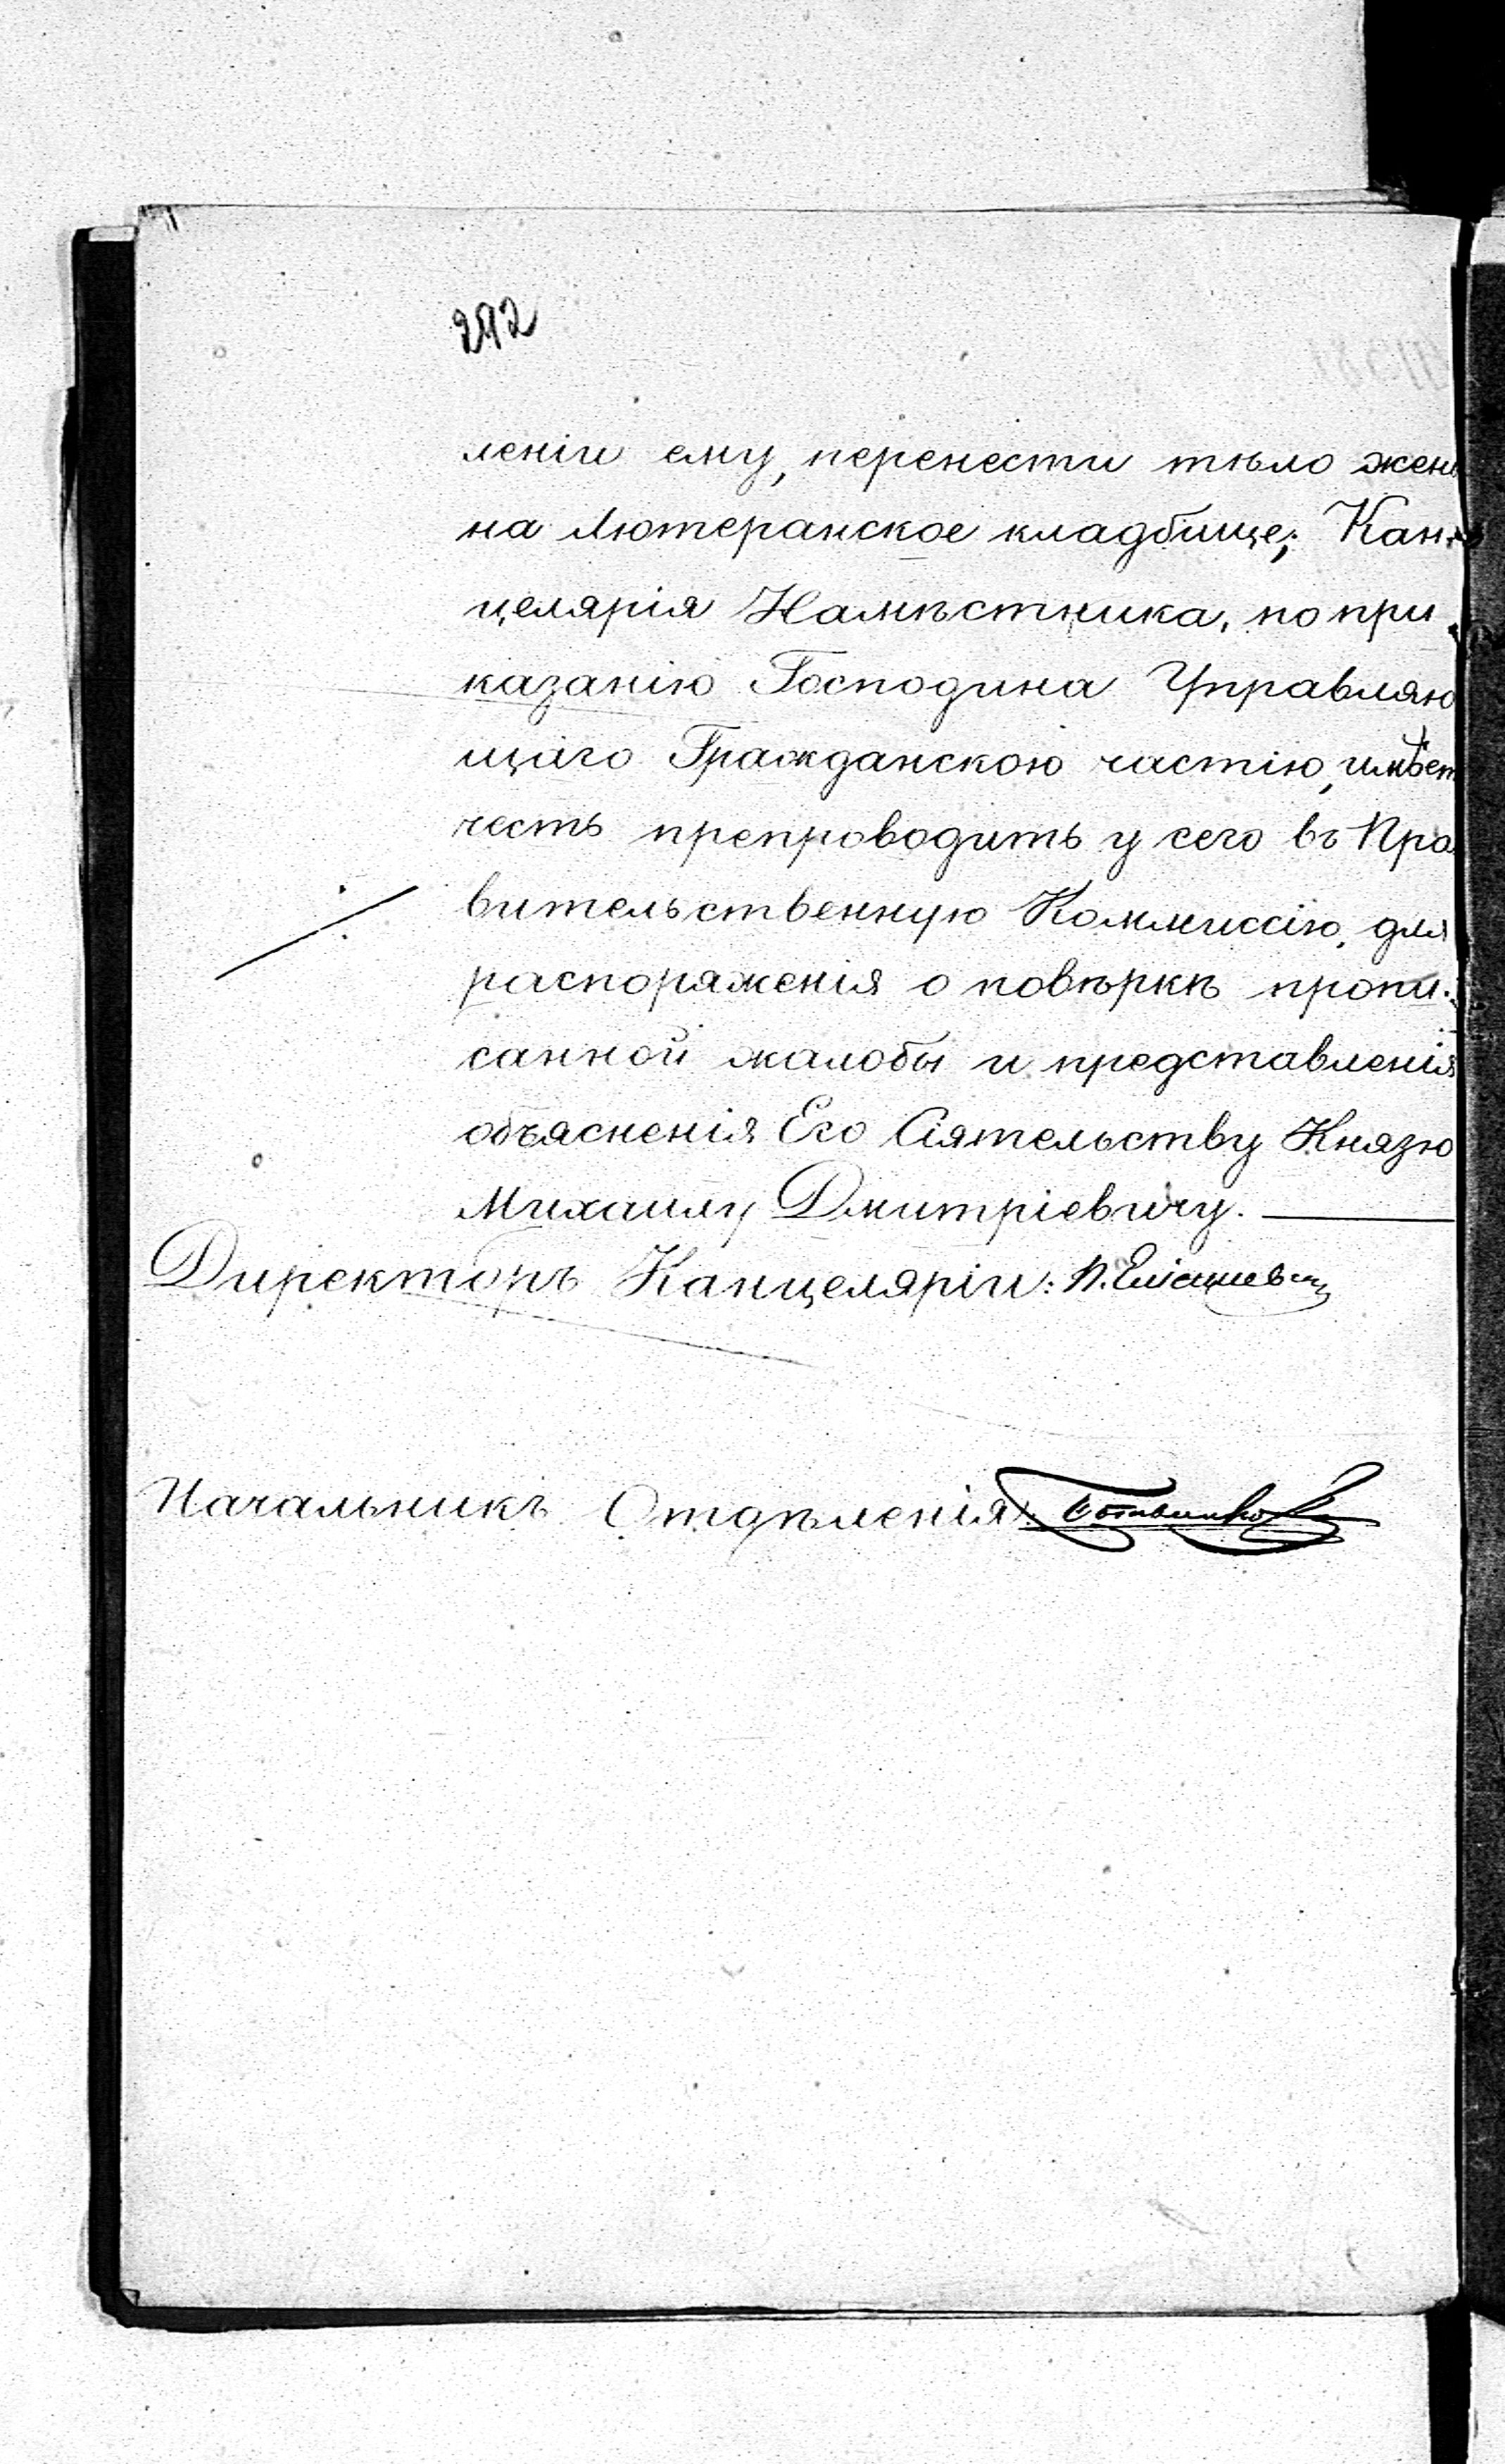 292
леніи ему, перенести тѣло жены
на Лютеранское кладбище; Кан-
целярія Намѣстника, по при
казанію Господина Управляю
щаго Гражданскою частію, имѣет
честь препроводить у сего въ Пра
вительственную Коммиссію, для
распоряженія о повѣркѣ пропи-
санной жалобы и представленія
объясненія Его Сіятельству Князю
Михаилу Дмитріевичу.
Директоръ Канцеляріи:
Начальникъ Отдѣленія: